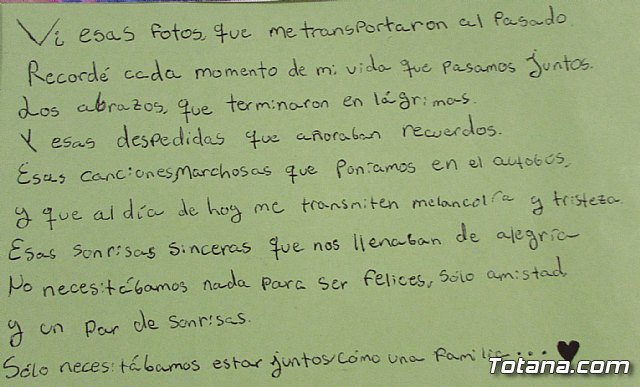 Vi esas fotos, que me transportaron al Pasado.
Recordé cada momento de mi vida que pasamos juntos.
Los abrazos, que terminaron en lágrimas.
Y esas despedidas que añoraban recuerdos.
Esas canciones, Marchosas que Poníamos en el autobús,
y que al día de hoy me transmiten melancolía y tristeza
Esas sonrisas sinceras que nos llenaban de alegría
No necesitábamos nada para ser felices, sólo amistad
y un par de sonrisas.
Sólo necesitábamos estar juntos como una familia... ♥
Totana.com